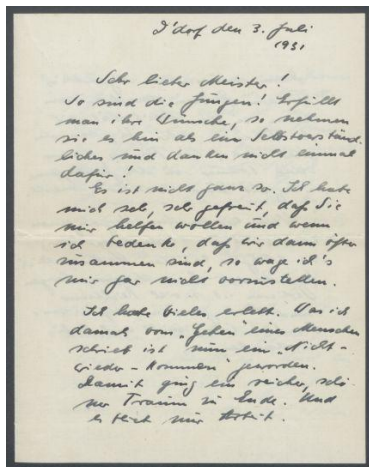 D'dorf den 3. Juli
1931
Sehr lieber Meister!
So sind die Jungen! Erfüllt
man ihre Wünsche, so nehmen
sie es hin als ein Selbstverständ
liches und danken nicht einmal
dafür!
Es ist nicht ganz so. Ich habe
mich sehr, sehr gefreut, daß Sie
mir helfen wollen und wenn
ich bedenke, daß wir dann öfter
zusammen sind, so wag ich's
mir gar nicht vorzustellen.
Ich habe vieles erlebt. Was ich
damals vom "Gehen" eines Menschen
schrieb ist nun ein "Nicht-
wieder-Kommen" geworden.
Damit ging ein reicher, schö
ner Traum zu Ende. Und
es bleibt nur Arbeit.